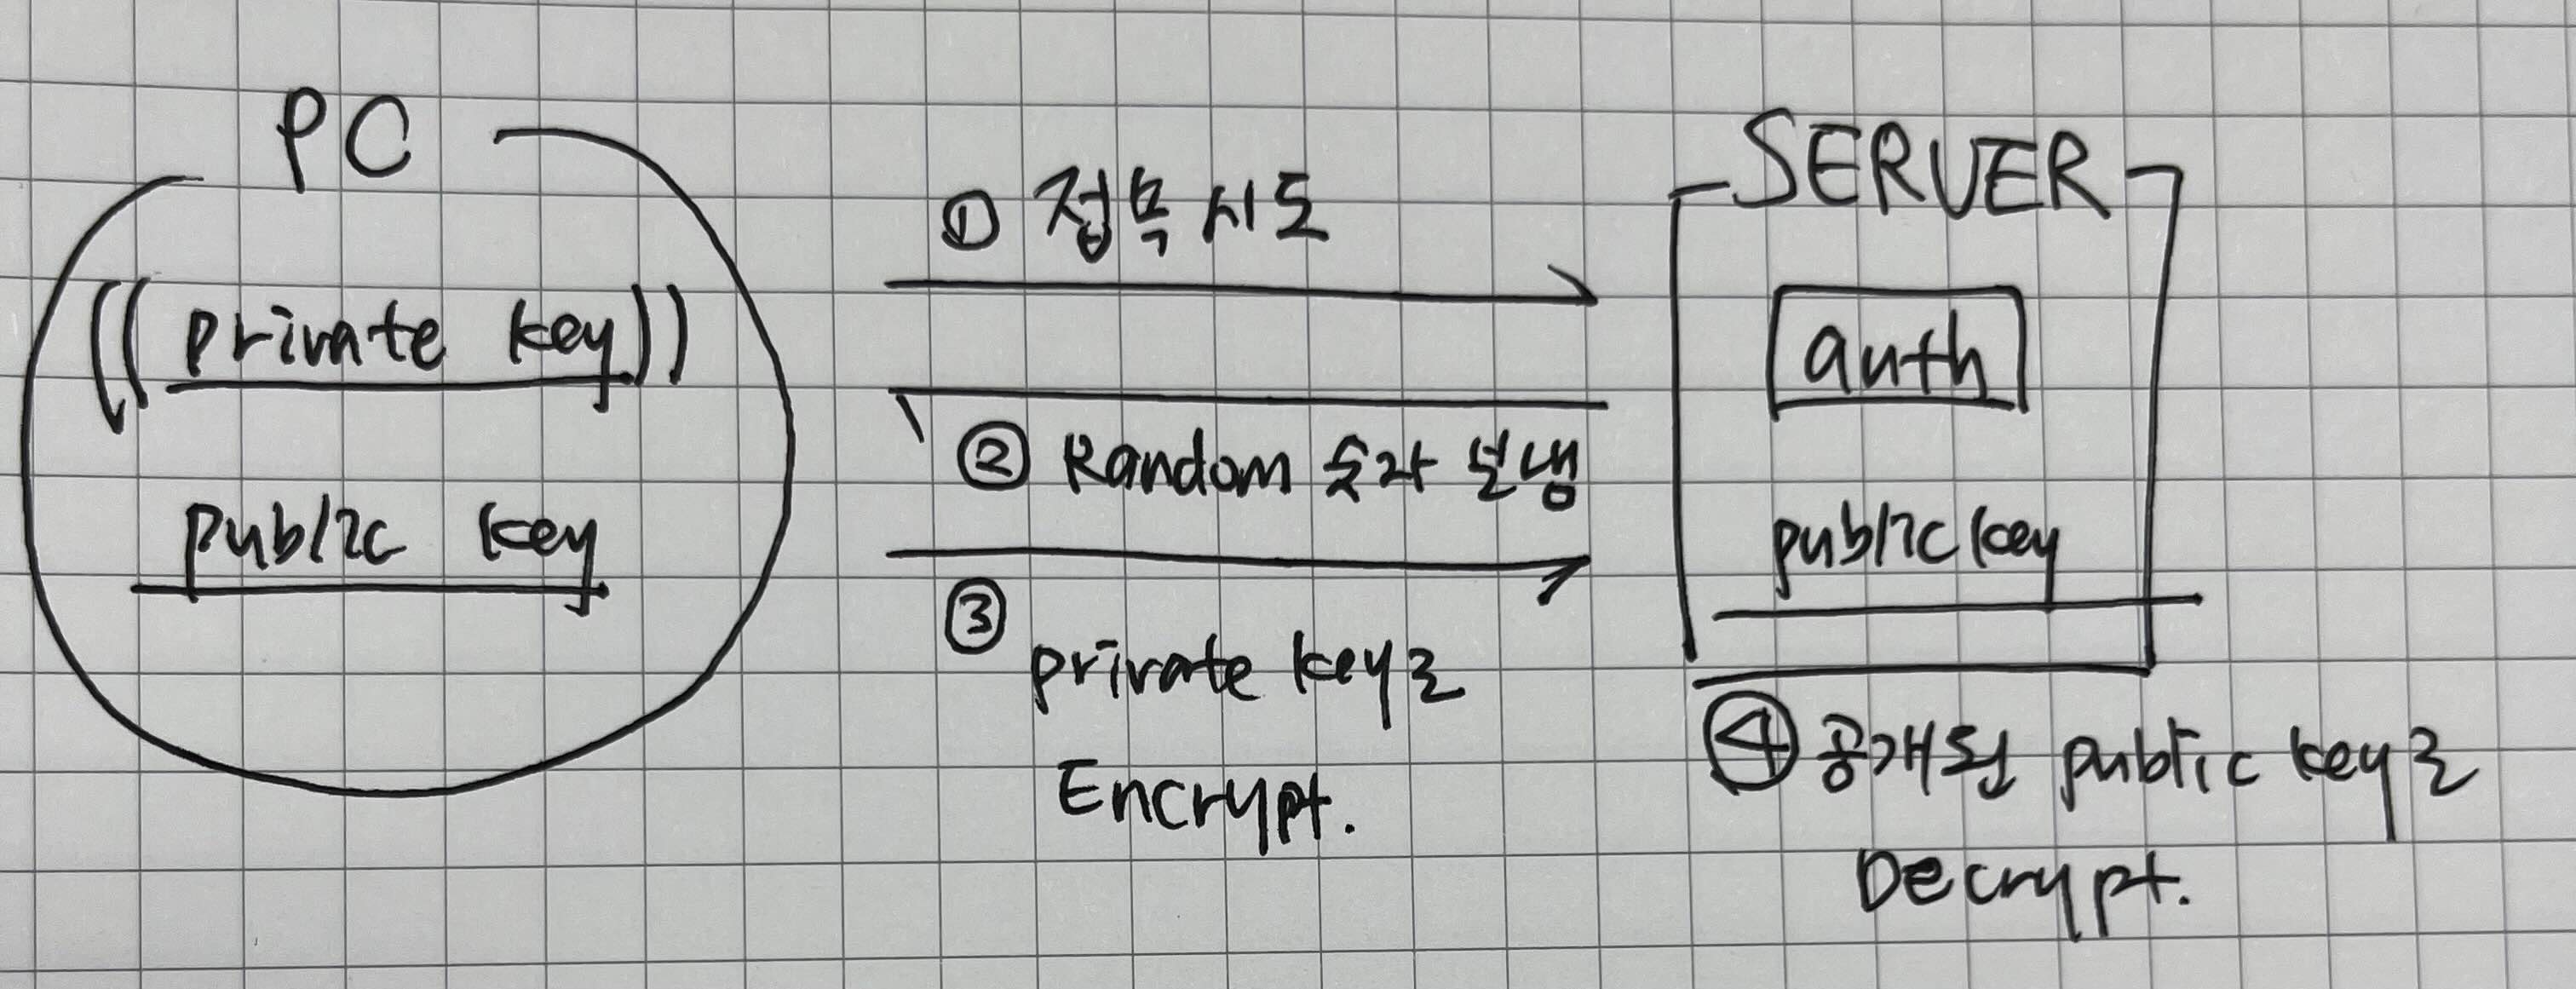 PC
private key
public key
① 접속 시도
② Random 숫자 보냄
③
private key로
Encrypt.
SERVER
auth
public key
④ 공개된 public key로
Decrypt.